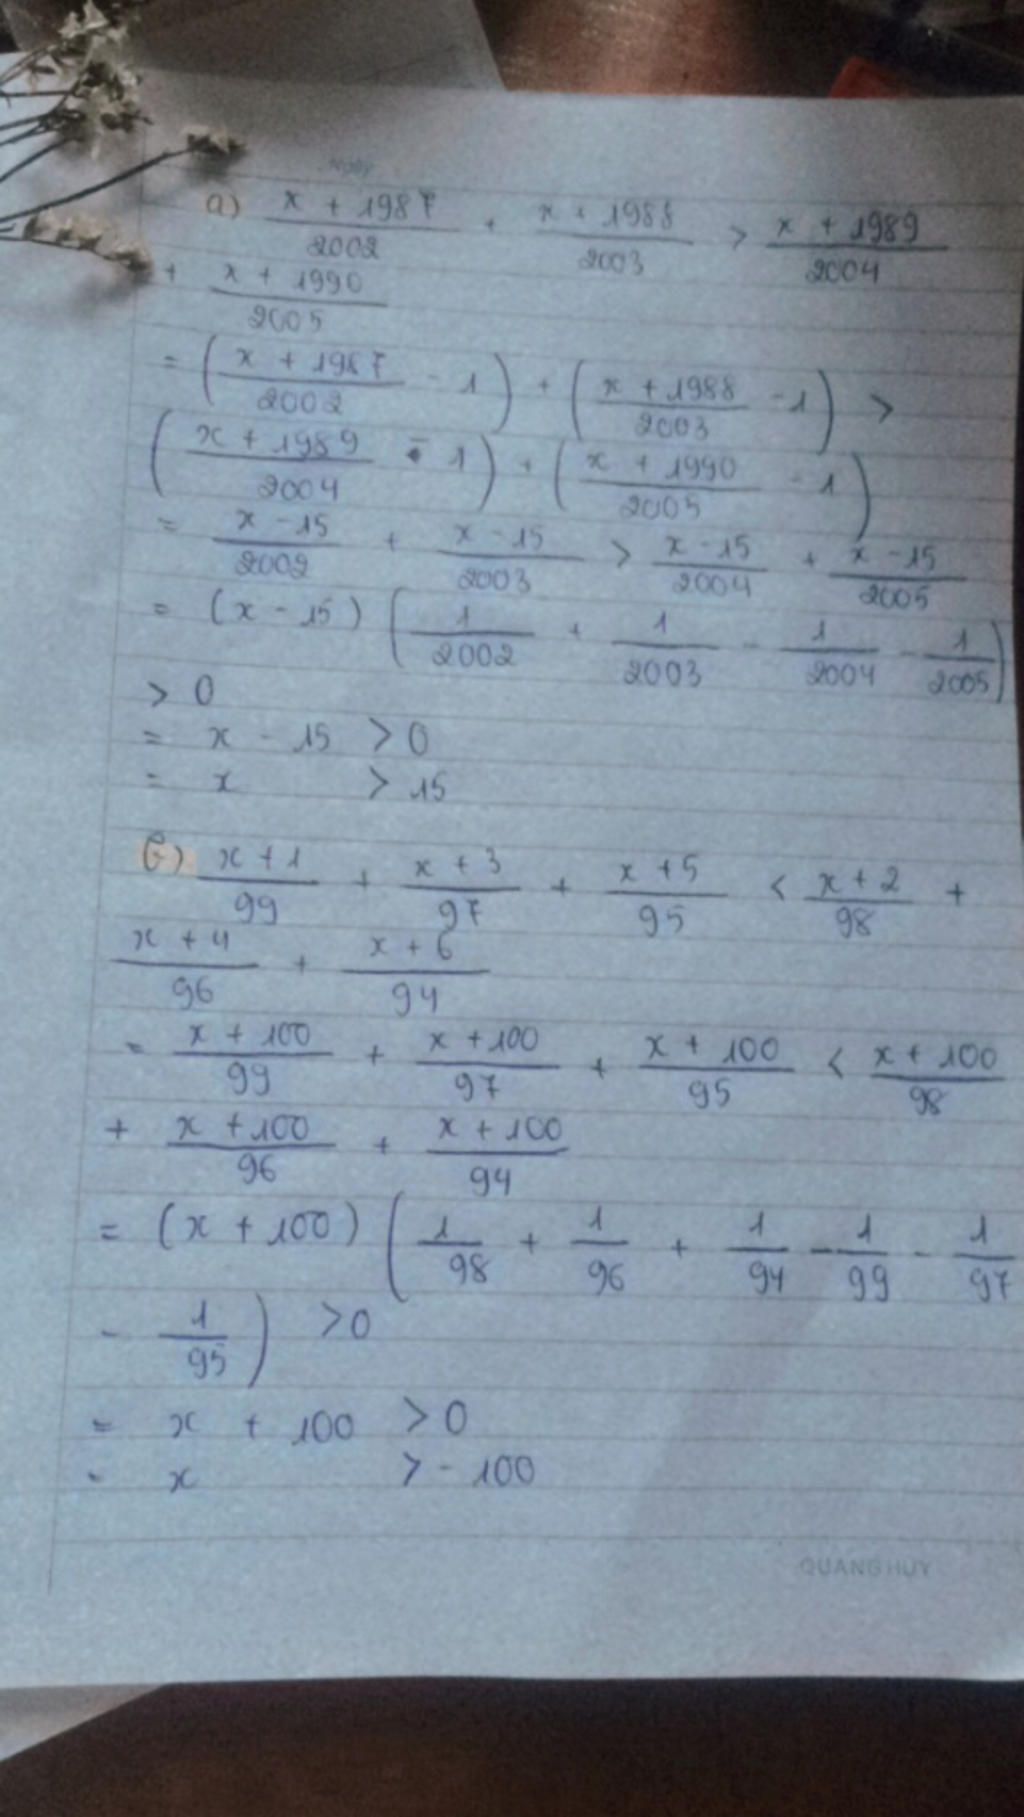 Ngày
a) (x + 1987)/2002 + (x + 1988)/2003 > (x + 1989)/2004
+ (x + 1990)/2005
= ((x + 1987)/2002 - 1) + ((x + 1988)/2003 - 1) >
((x + 1989)/2004 - 1) + ((x + 1990)/2005 - 1)
= (x - 15)/2002 + (x - 15)/2003 > (x - 15)/2004 + (x - 15)/2005
= (x - 15) (1/2002 + 1/2003 - 1/2004 - 1/2005)
> 0
= x - 15 > 0
= x > 15
b) (x + 1)/99 + (x + 3)/97 + (x + 5)/95 < (x + 2)/98 +
(x + 4)/96 + (x + 6)/94
= (x + 100)/99 + (x + 100)/97 + (x + 100)/95 < (x + 100)/98
+ (x + 100)/96 + (x + 100)/94
= (x + 100) (1/98 + 1/96 + 1/94 - 1/99 - 1/97
- 1/95) > 0
= x + 100 > 0
= x > - 100
QUANG HUY